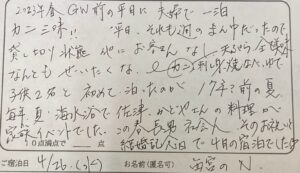 2023年今 GW前の平日に 夫婦で一泊
カニ三昧!! 平日、それも週のまん中だったので
貸し切り状態 他にお客さんなし
なんとも ぜいたくなー カニ刺し、焼、ゆで
子供2名と 初めて泊ったのが 17年?前の夏
毎年夏・海水浴で佐津、かどやさんの料理が
定番イベントでした。この春長男社会人、そのお祝いと
結婚記念日で 4月の宿泊でした
10点満点で 点
ご宿泊日 4/26 (水) お名前(匿名可) 西宮の N